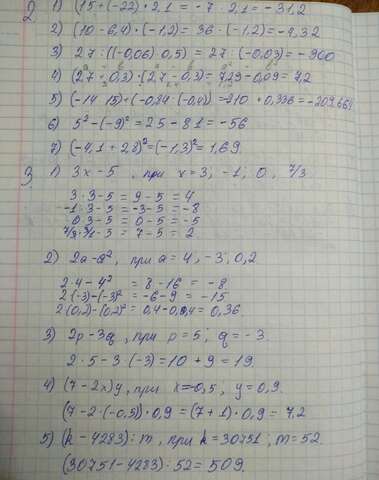 2) 1) (15+(-22)·2,1 = -7 · 2,1 = -31,2
2) (10-6,4)·(-1,2) = 36 · (-1,2) = -4,32
3) 27 : ((-0,06)·0,5) = 27 : (-0,03) = -900
4) (2,7+0,3)·(2,7-0,3) = 7,29-0,09 = 7,2
5) (-14·15)+(-0,84·(-0,4)) = 210 + 0,336 = -209,664
6) 5²-(-9)² = 25-81 = -56
7) (-4,1+2,8)² = (-1,3)² = 1,69
3. 1) 3x-5, при x=3; -1; 0, 7/3
3·3-5 = 9-5 = 4
-1·3-5 = -3-5 = -8
0·3-5 = 0-5 = -5
7/3·3/1-5 = 7-5 = 2
2) 2a-a², при a=4, -3, 0,2
2·4-4² = 8-16 = -8
2(-3)-(-3)² = -6-9 = -15
2(0,2)-(0,2)² = 0,4-0,04 = 0,36.
3) 2p-3q, при p=5, q=-3.
2·5-3·(-3) = 10+9 = 19.
4) (7-2x)y, при x=-0,5, y=0,9.
(7-2·(-0,5))·0,9 = (7+1)·0,9 = 7,2
5) (k-4283):m, при k=30751, m=52.
(30751-4283):52 = 509.